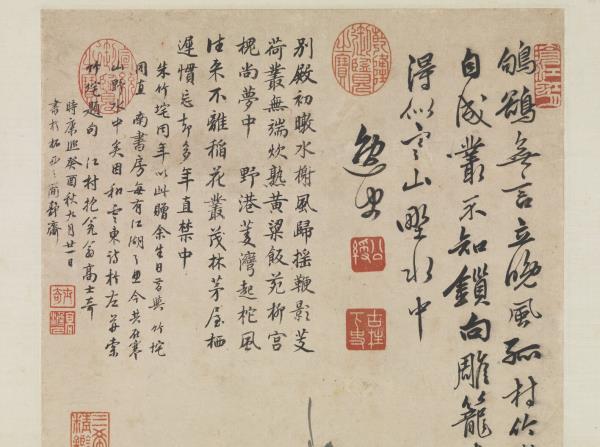 鴝鵒無言立晚風孤村竹
自成叢不知鎖向雕籠
得似空山野水中
逸史
公綬
古柱下史
乾隆御覽之寶
別殿初暾水榭風歸搖鞭影芰
荷叢無端炊熟黃粱飯苑柳宮
槐尚夢中 野港菱灣起柁風
往來不離稻花叢茂林茅屋栖
遲慣忘却多年直禁中
朱竹垞同年以此贈余生日昔與竹垞
同直 南書房每有江湖之思今共在寒
山野水中矣因和雲東詩於左并索
竹垞題句 江村抱瓮翁高士奇
時康熙癸酉秋九月廿一日
書於柘西之簡靜齋